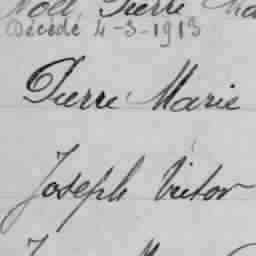 Noël, Pierre Ma
Décédé 4-3-1913
Pierre Marie
Joseph Victor